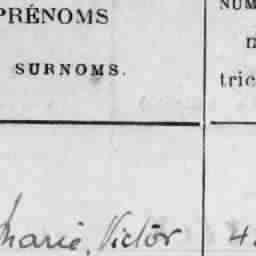 PRÉNOMS
SURNOMS.
NUM
tric
Marie, Victor 4